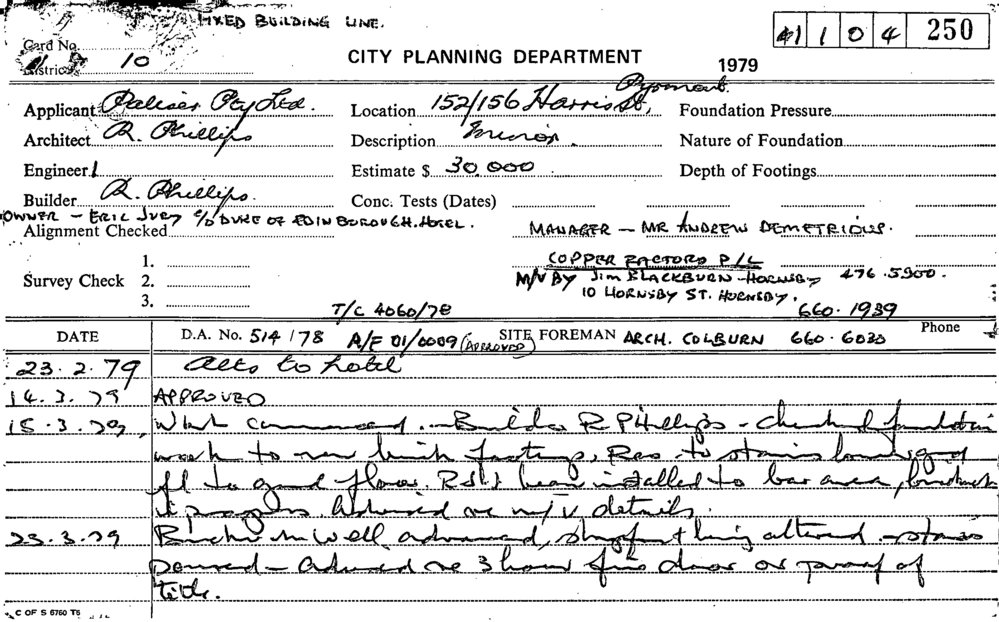 FIXED BUILDING LINE.
41 1 0 4 250
Card No.
District 10
CITY PLANNING DEPARTMENT
1979
Applicant Paliser Pty Ltd. Location 152/156 Harris St, Pyrmont Foundation Pressure
Architect R. Phillips Description Minor. Nature of Foundation
Engineer Estimate $ 30,000 Depth of Footings
Builder R. Phillips. Conc. Tests (Dates)
OWNER - ERIC JURY C/O DUKE OF EDINBOROUGH. HOTEL.
Alignment Checked MANAGER - MR ANDREW DEMETRIOUS.
COPPER FACTORS P/L
Survey Check 1.
2.
3.
M/V BY JIM BLACKBURN - HORNSBY 476.5900.
10 HORNSBY ST. HORNSBY.
T/C 4060/78 660.1939
DATE D.A. No. 514/78 A/F 01/0009 (APPROVED) SITE FOREMAN ARCH. COLBURN 660-6030 Phone
23.2.79 Alts to hotel
14.3.79 APPROVED
15.3.79, Work commenced. - Builder R Phillips - checked foundation
work to new brick footings, Reo to stairs
to floor. RSJ installed to bar area, brickwork
in progress Advised re m/v details.
23.3.79 Brickwork well advanced, altered - stairs
poured - Advised re 3 hour fire door or proof of
title.
C OF S 6760 T6